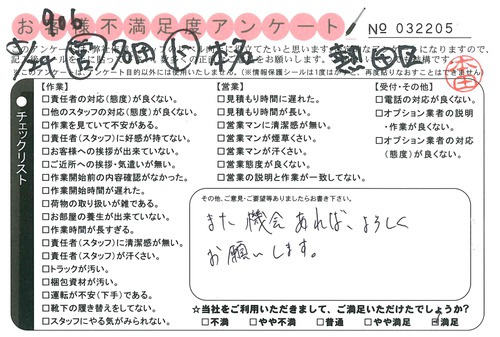 お客様不満足度アンケート
No 032205
906
このアンケートは、弊社
※このアンケートは、アンケート目的以外には使用いたしません。(※情報保護シールは1度はがすと、再度貼りなおすことはできません)
チェックリスト
【作業】
□責任者の対応(態度)が良くない。
□他のスタッフの対応(態度)が良くない。
□作業を見ていて不安がある。
□責任者(スタッフ)に好感が持てない。
□お客様への挨拶が出来ていない。
□ご近所への挨拶・気遣いが無い。
□作業開始前の内容確認がなかった。
□作業開始時間が遅れた。
□荷物の取り扱いが雑である。
□お部屋の養生が出来ていない。
□作業時間が長すぎる。
□責任者(スタッフ)に清潔感が無い。
□責任者(スタッフ)が汗くさい。
□トラックが汚い。
□梱包資材が汚い。
□運転が不安(下手)である。
□靴下の履き替えをしてない。
□スタッフにやる気がみられない。
【営業】
□見積もり時間に遅れた。
□見積もり時間が長い。
□営業マンに清潔感が無い。
□営業マンが煙草くさい。
□営業マンが汗くさい。
□営業態度が良くない。
□営業の説明と作業が一致してない。
【受付・その他】
□電話の対応が良くない。
□オプション業者の説明・作業が良くない。
□オプション業者の対応(態度)が良くない。
その他、ご意見・ご要望等ありましたらお書き下さい。
また機会あれば、よろしく
お願いします。
☆当社をご利用いただきまして、ご満足いただけたでしょうか?
□不満 □やや不満 □普通 □やや満足 ☑満足